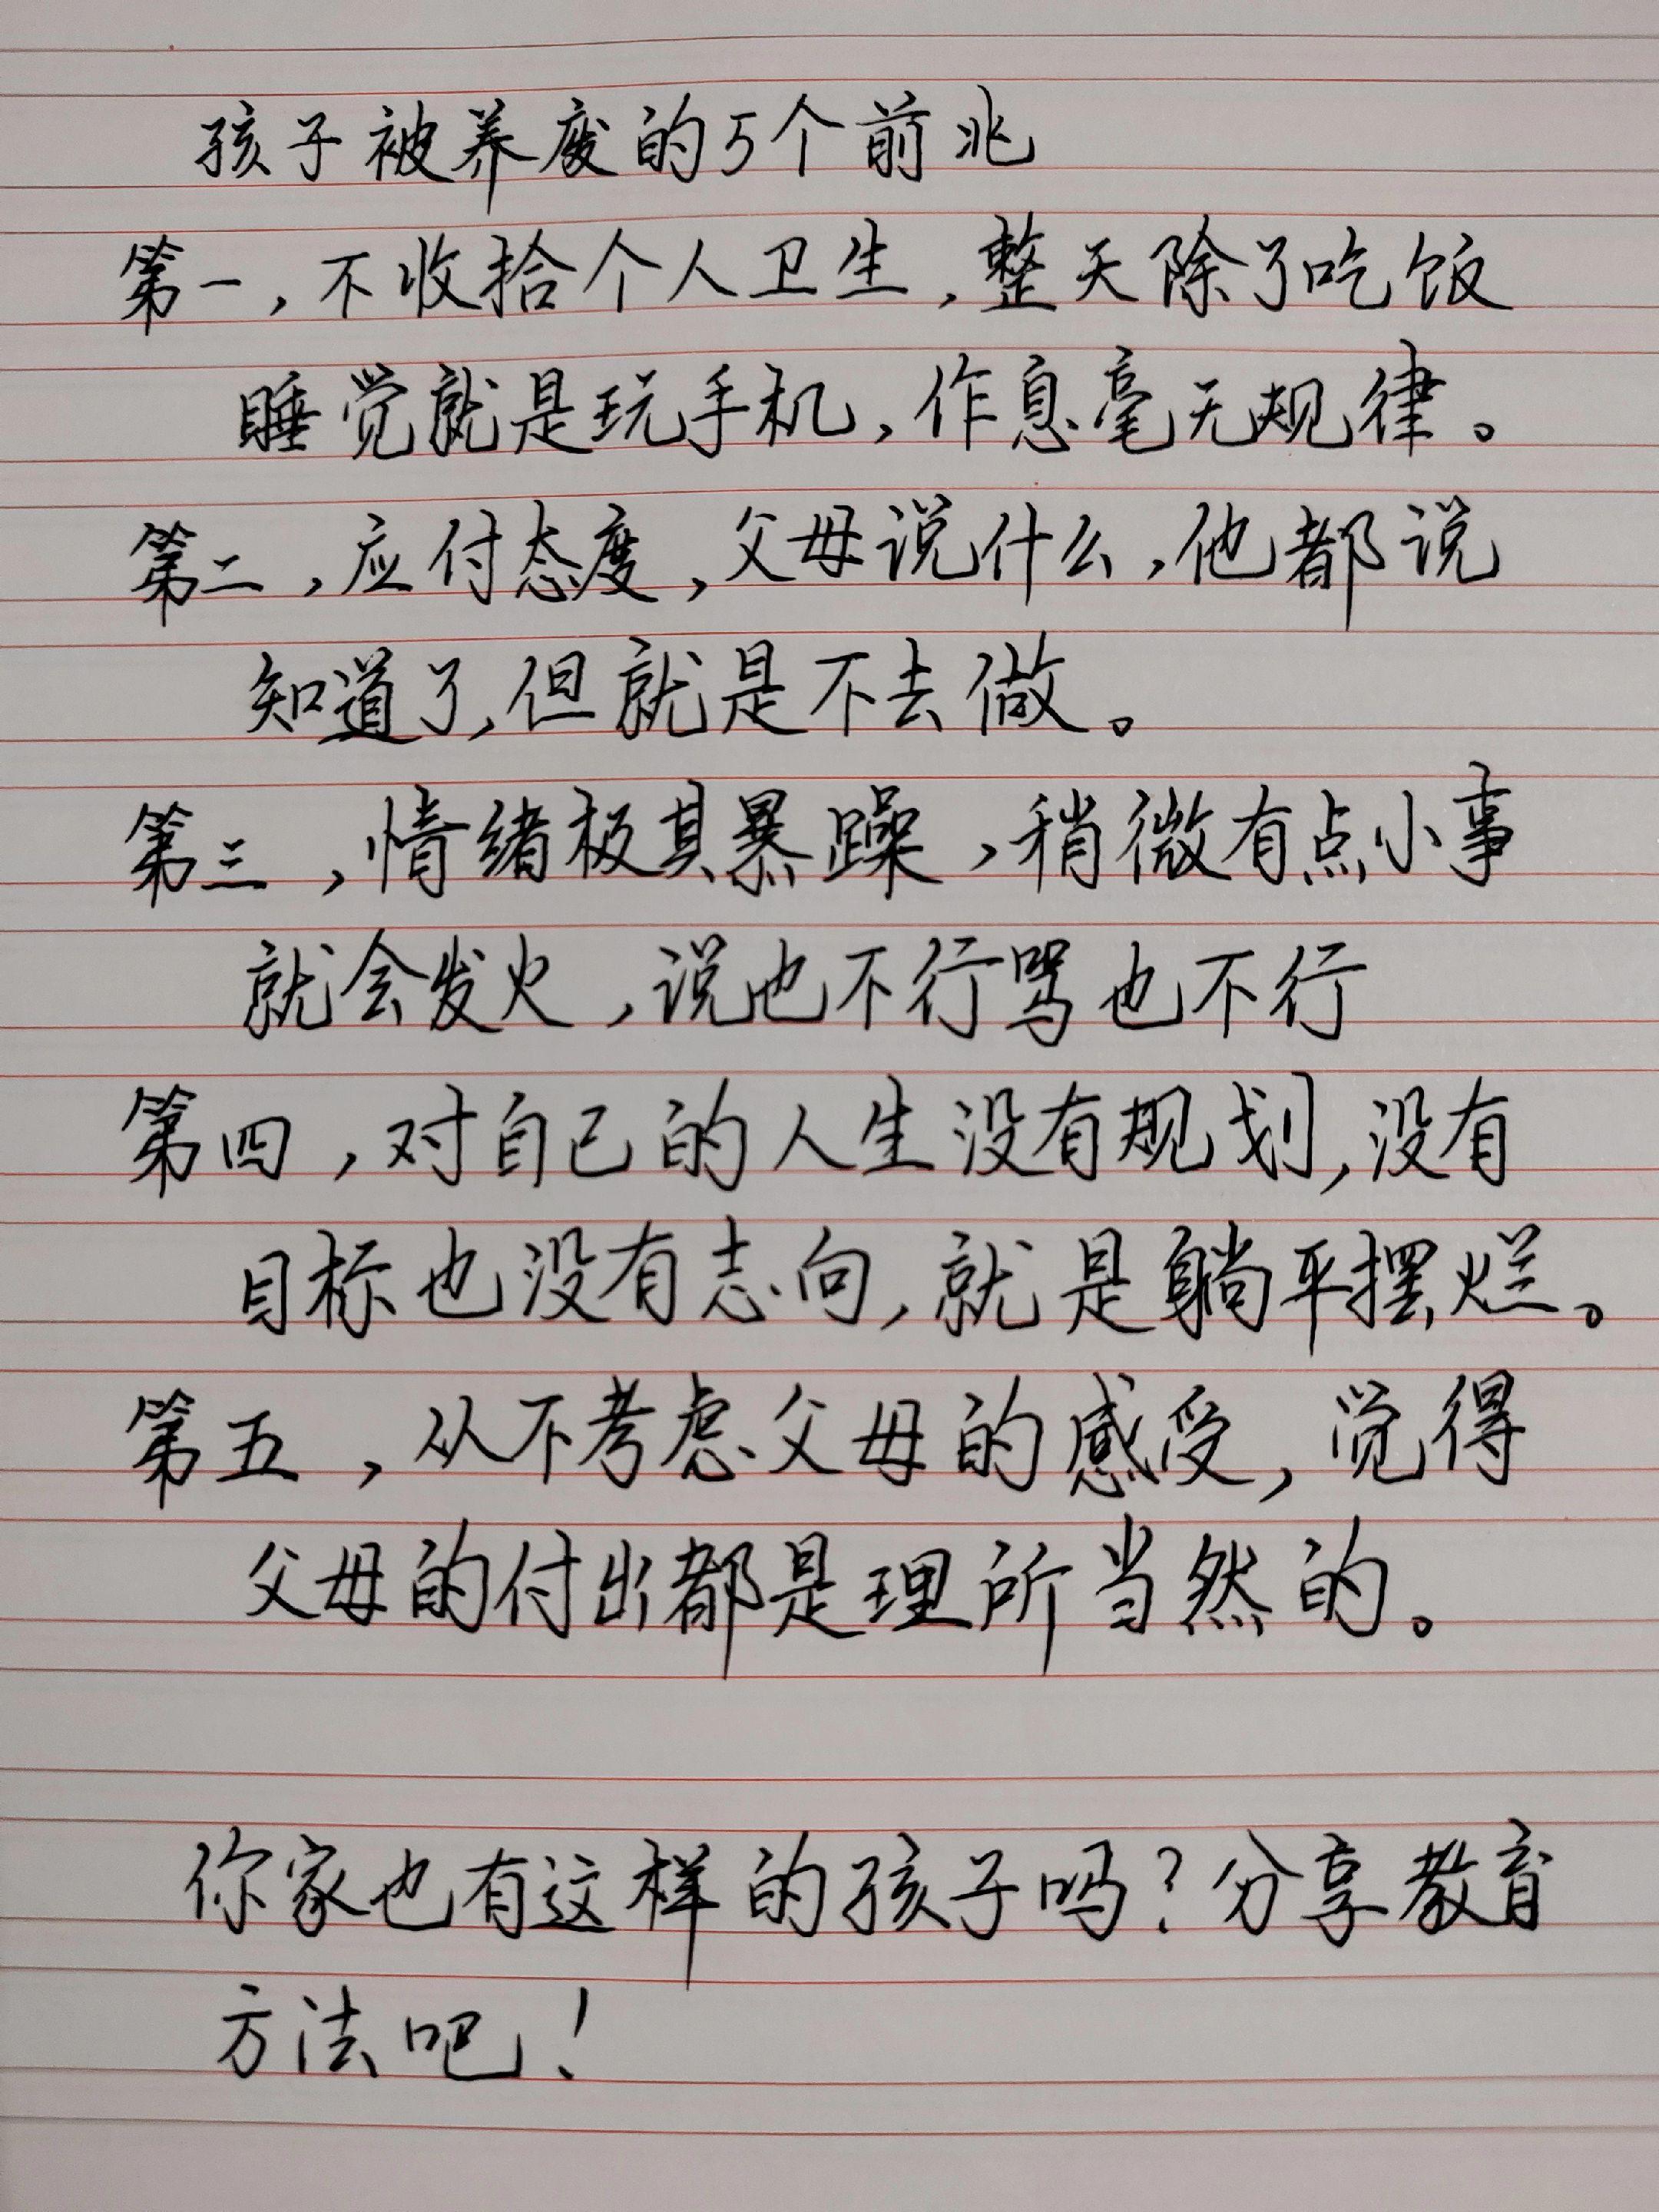 孩子被养废的5个前兆
第一,不收拾个人卫生,整天除了吃饭
睡觉就是玩手机,作息毫无规律。
第二,应付态度,父母说什么,他都说
知道了,但就是不去做。
第三,情绪极其暴躁,稍微有点小事
就会发火,说也不行骂也不行
第四,对自己的人生没有规划,没有
目标也没有志向,就是躺平摆烂。
第五,从不考虑父母的感受,觉得
父母的付出都是理所当然的。
你家也有这样的孩子吗?分享教育
方法吧!